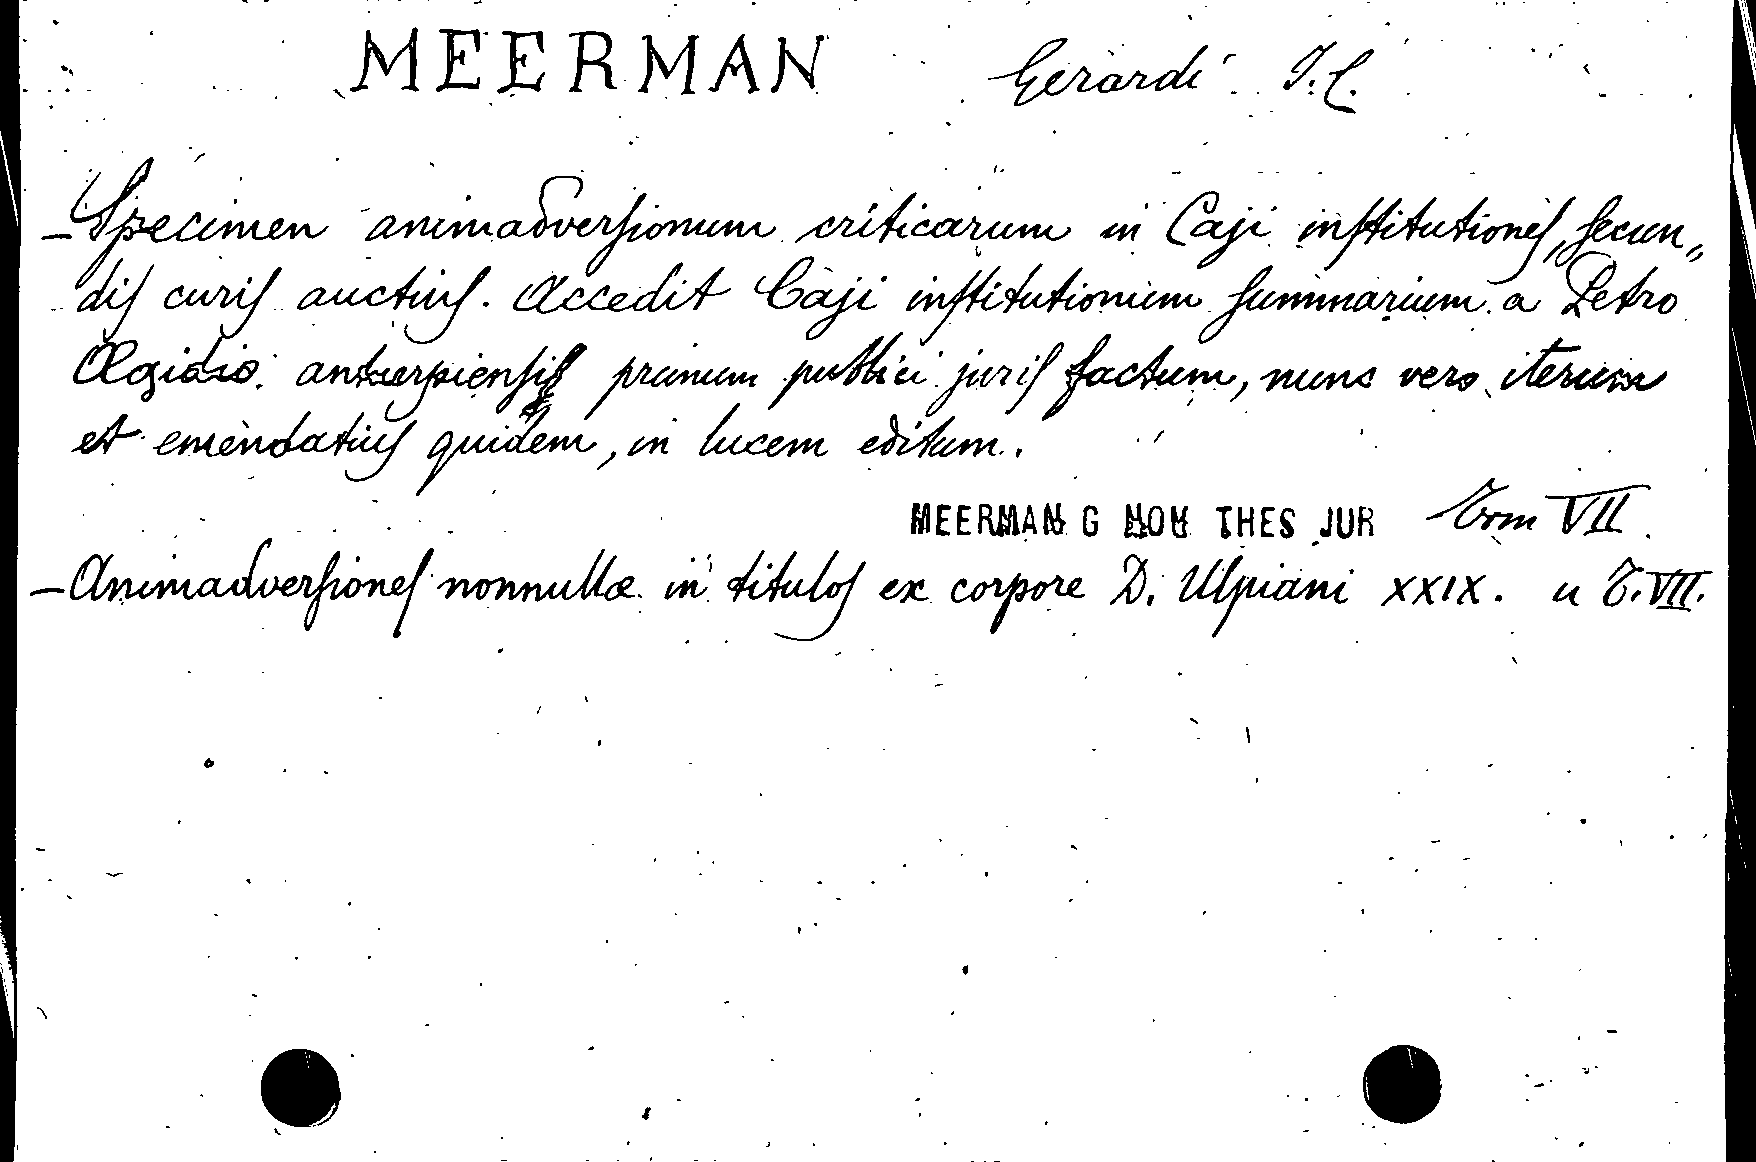 MEERMAN Gerardi J.C.
- Specimen animadversionum criticarum in Caji institutiones, secun„
dis curis auctius. Accedit Caji institutionum summarium a Petro
Ægidio antuerpiensis primum publici juris factum, nunc vero iterum
et emendatius quidem, in lucem editum.
MEERMAN G NOU THES JUR Tom VII
- Animadversiones nonnullæ in titulos ex corpore D. Ulpiani XXIX. u T. VII.